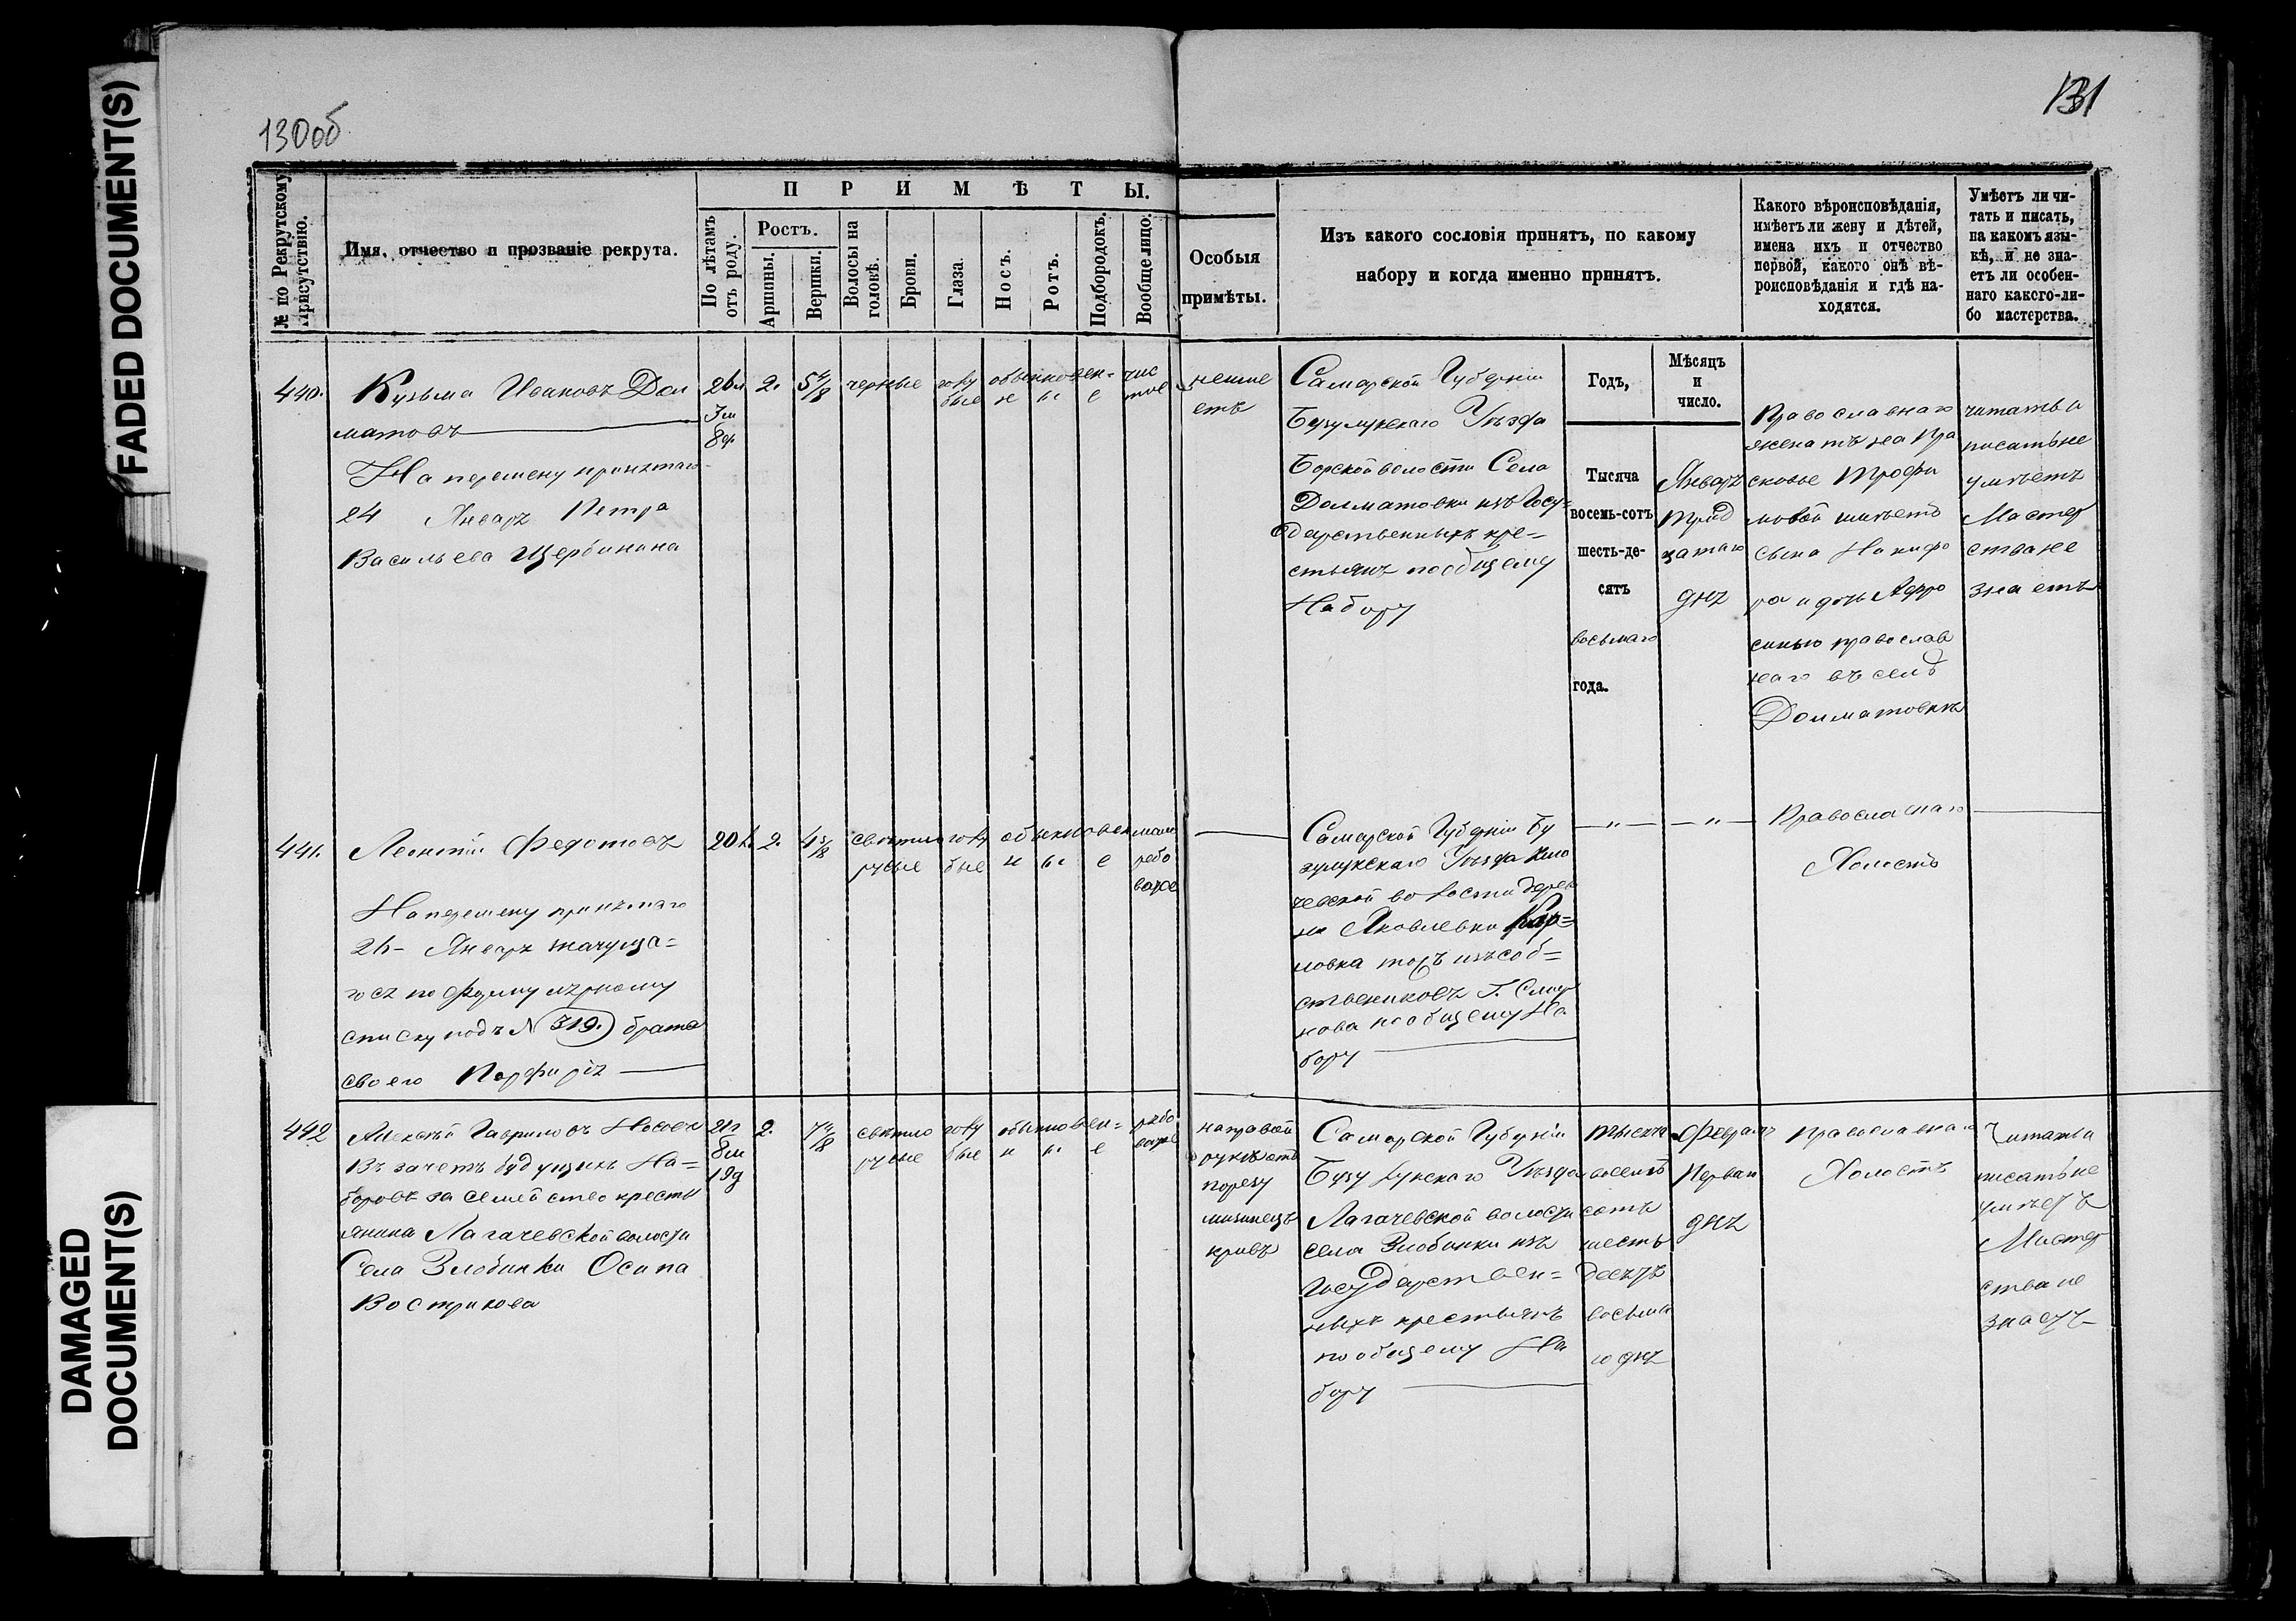 FADED DOCUMENT(S)
DAMAGED
DOCUMENT(S)
130об
131
№ по Рекрутскому
Присутствію.
Имя, отчество и прозваніе рекрута.
ПРИМѢТЫ.
По лѣтамъ
отъ роду.
Ростъ.
Аршины.
Вершки.
Волосы на
головѣ.
Брови.
Глаза.
Носъ.
Ротъ.
Подбородокъ.
Вообще лицо.
Особыя
примѣты.
Изъ какого сословія принятъ, по какому
набору и когда именно принятъ.
Какого вѣроисповѣданія,
имѣетъ ли жену и дѣтей,
имена ихъ и отчество
первой, какого онѣ вѣ-
роисповѣданія и гдѣ на-
ходятся.
Умѣетъ ли чи-
тать и писать,
на какомъ язы-
кѣ, и не зна-
етъ ли особен-
наго какого-ли-
бо мастерства.
440.
Кузьма Ивановъ Дол
матовъ
На перемену принятаго
24 Января Петра
Васильева Щербинина
2.
черные
голу
бые
обыкновен-
н ы е
чис
тое
неиме
етъ
Самарской Губерніи
Бузулукскаго Уѣзда
Борской волости Села
Долматовки изъ Госу-
дарственныхъ кре-
стьянъ по общему
Набору
Годъ,
Мѣсяцъ
и
число.
Тысяча
восемь-сотъ
шесть-де-
сятъ
восьмаго
года.
Январъ
трид
цатаго
дня
Православнаго
женатъ на Пра
сковье Трофи
мовой имѣетъ
сына Никифо
ра и дочь Афро
синью православ
наго въ селѣ
Долматовкѣ
читать и
писать не
умѣетъ
Мастер
ства не
знаетъ
441.
Леонтій Федотовъ
На перемену принятаго
26 - Января значуща-
гося по формулярному
списку подъ № 319. брата
своего Порфирія
20 л.
2.
4 5/8
светло
русые
голу
бые
обыкновен
н ы е
мало
рябо
ватое
Самарской Губерніи Бу
зулукскаго Уѣзда
волости дерев
ни Яковлевки
ловка тожъ изъ соб-
ственниковъ Г. Смир
нова по общему На
бору
— „ —
— „ —
Православнаго
Холостъ
442
Алексѣй Гавриловъ Носовъ
Въ зачетъ будущихъ На-
боровъ за семейство кресть
янина Лагачевской волости
Села Злобинки Осипа
Вострикова
21г
8м
19д
2.
светло
русые
голу
бые
обыкновен-
н ы е
рябо
ватое
на правой
руке отъ
порезу
мизинецъ
кривъ
Самарской Губерніи
Бузулукскаго Уѣзда
Лагачевской волости
села Злобинки изъ
Государствен-
ныхъ крестьянъ
по общему На
бору
тысяча
восемь
сотъ
шесть
десятъ
восьма
го дня
Февраля
Перваго
дня
Православнаго
Холостъ
Читать и
писать не
умѣетъ
Мастер
ства не
знаетъ